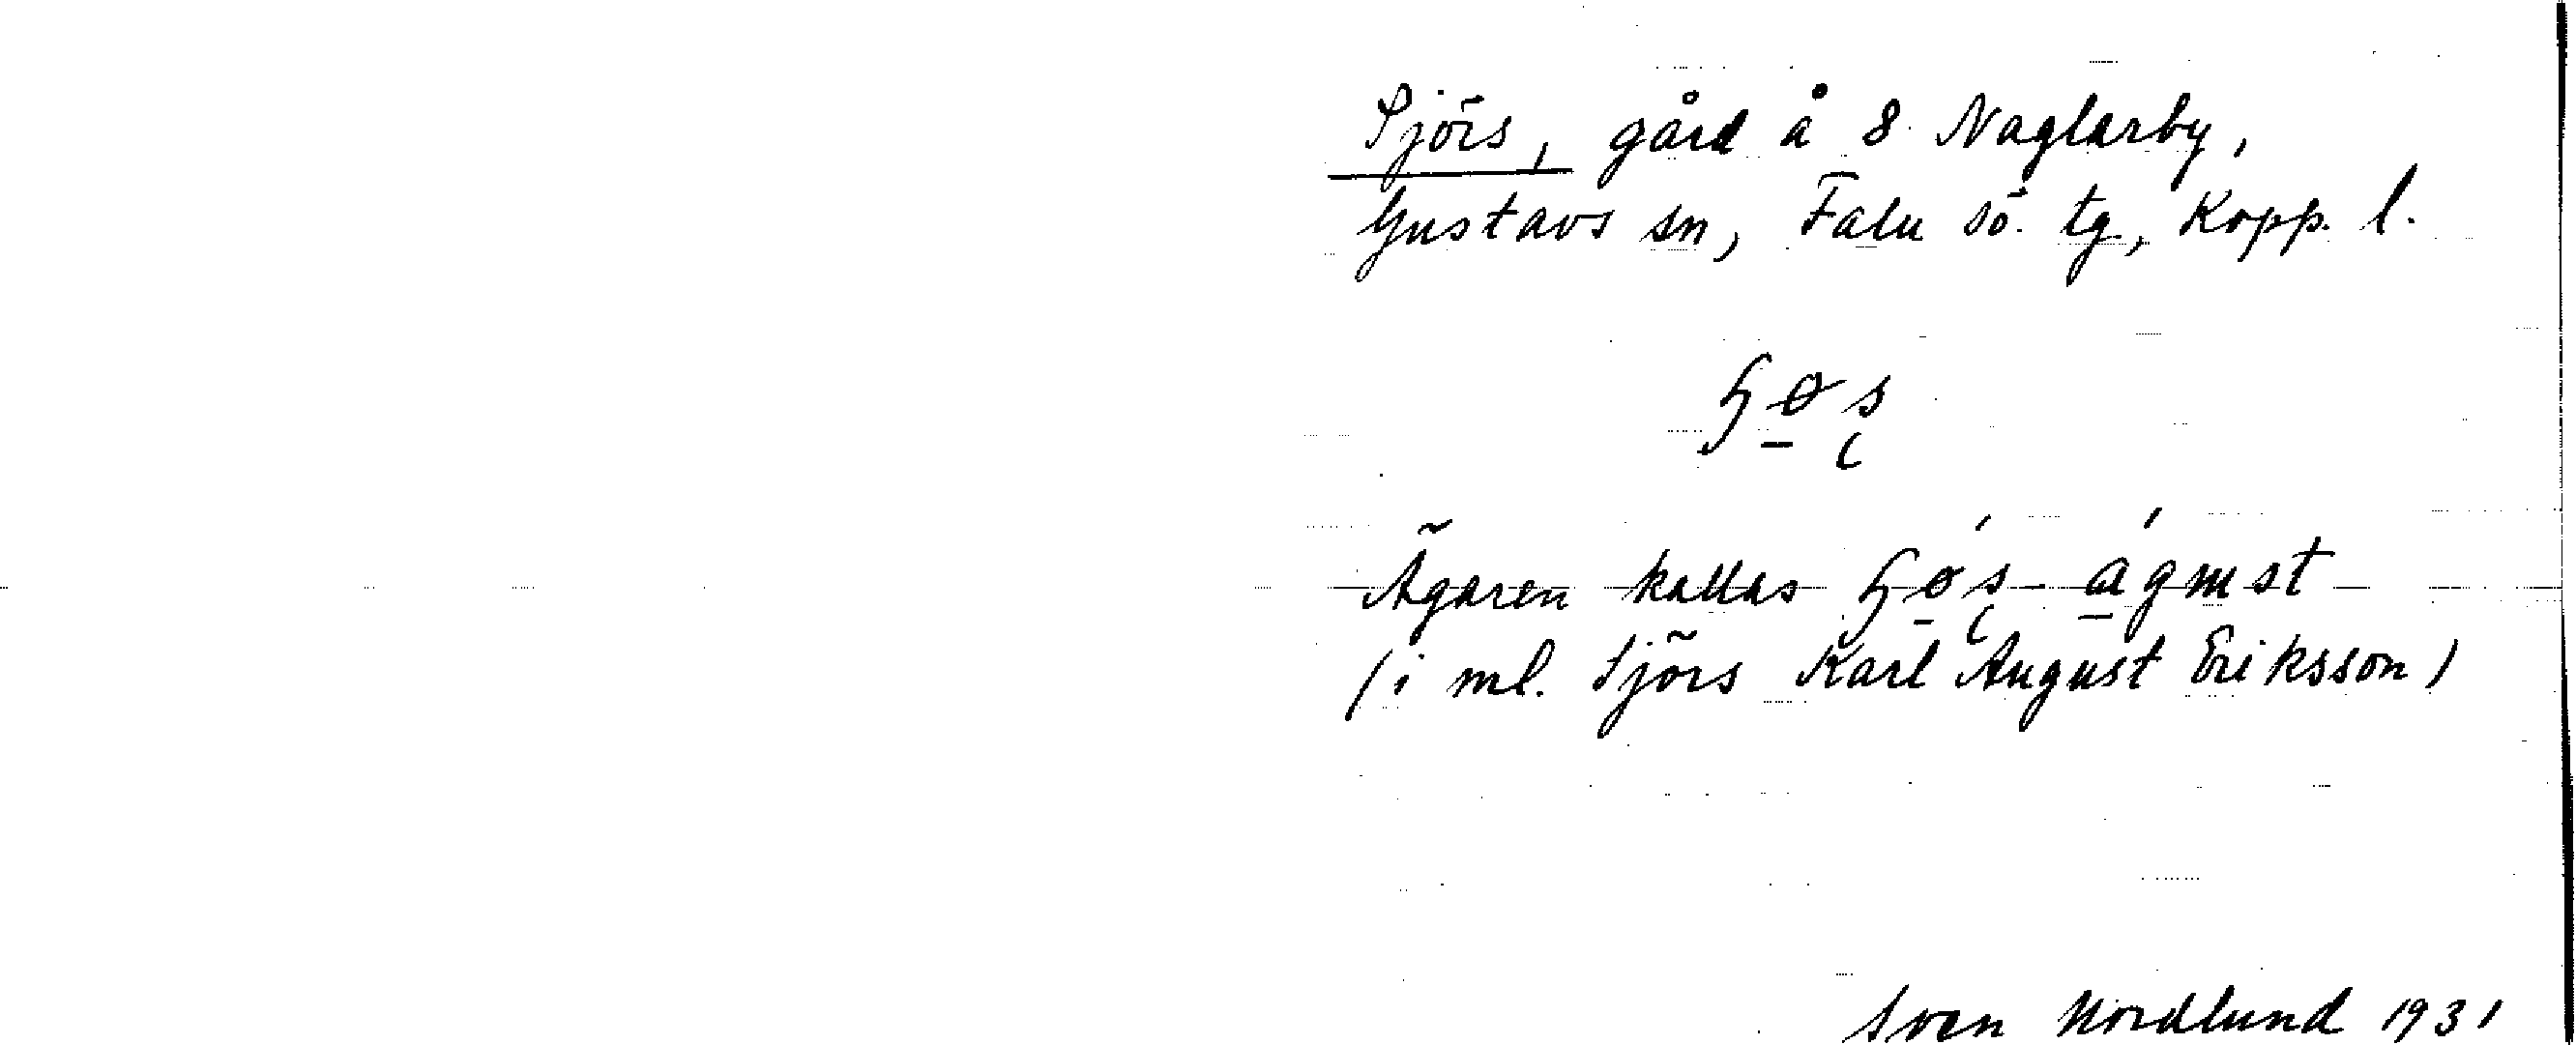 Sjörs, gård å 8 Naglarby,
Gustavs sn, Falu sö. tg, Kopp. l.
Ägaren kallas
(i ml. Sjörs Karl August Eriksson)
Sven Nordlund 1931